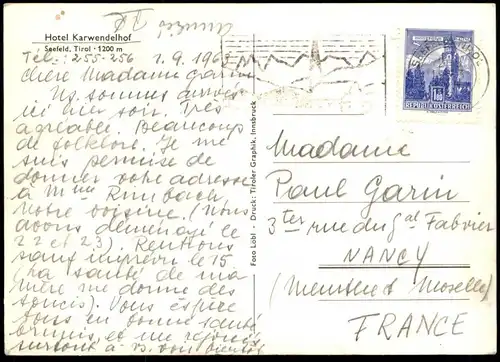 Hotel Karwendelhof
Seefeld, Tirol · 1200 m
Tél.: 255-256 1.9.1963
Chère Madame Garin
Ns. sommes arrivés
ici hier soir. Très
agréable. Beaucoup
de folklore. Je me
suis permise de
donner votre adresse
à Mme Rimbach
notre voisine. (Nous
avons déménagé le
22 et 23). Rentrons
sans imprévu le 15
(la santé de ma
mère me donne des
soucis). Vous espère
tous en bonne santé
et me réjouis
surtout à vs. voir bientôt
Foto Löbl - Druck: Tiroler Graphik, Innsbruck
REPUBLIK ÖSTERREICH
Madame
Paul Garin
3ter rue du Gal Fabvier
NANCY
(Meurthe et Moselle)
FRANCE